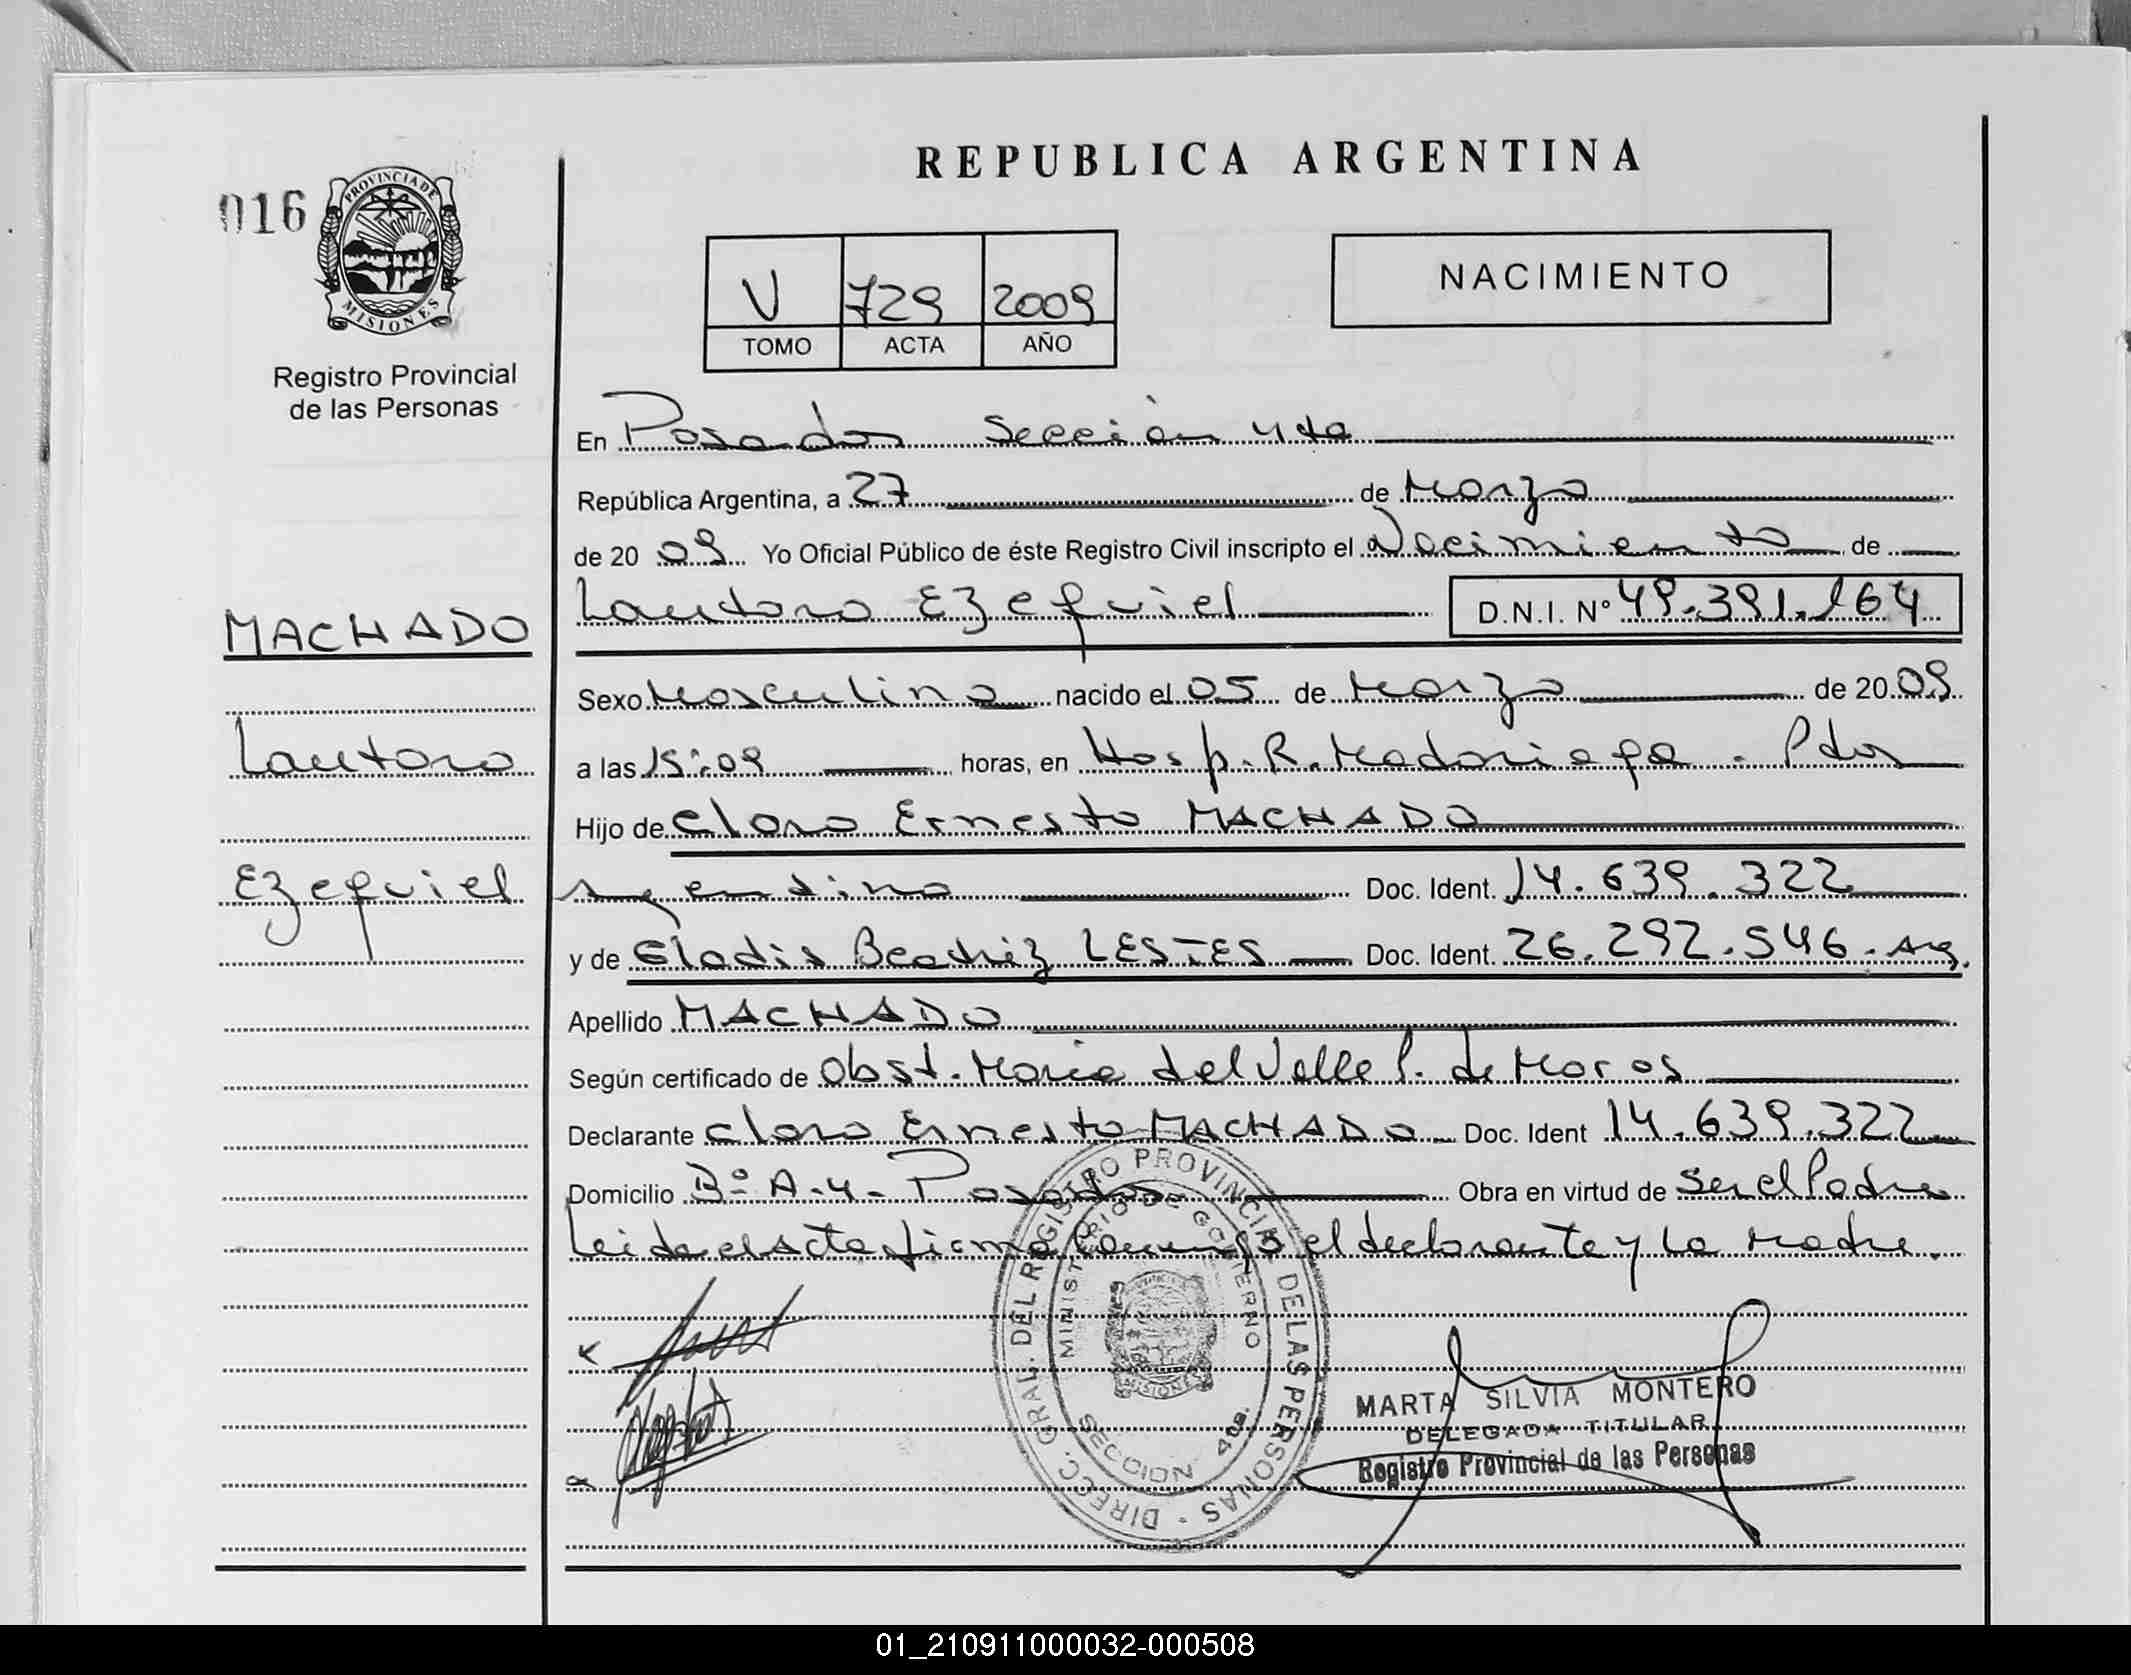 REPUBLICA ARGENTINA
016
PROVINCIA DE
MISIONES
Registro Provincial
de las Personas
V 729 2009
TOMO ACTA AÑO
NACIMIENTO
En Posadas Sección 4ta
República Argentina, a 27 de Marzo
de 20 09 Yo Oficial Público de éste Registro Civil inscripto el Nacimiento de
Lautaro Ezequiel D.N.I. Nº 49.391.164
MACHADO
Lautaro
Ezequiel
Sexo Masculino nacido el 05 de Marzo de 20 09
a las 15:09 horas, en Hosp. R. Madariaga. Pdas
Hijo de Claro Ernesto MACHADO
Argentino Doc. Ident. 14.639.322
y de Gladis Beatriz Doc. Ident. 26.292.546. Arg.
Apellido MACHADO
Según certificado de Obst. Maria del Valle P. de
Declarante Claro Ernesto MACHADO Doc. Ident 14.639.322
Domicilio Bº A-4- Posadas Obra en virtud de Ser el Padre
Leida el Acta firma conmigo el declarante y la Madre.
DIRECC. GRAL. DEL REGISTRO PROVINCIAL DE LAS PERSONAS -
MINISTERIO DE GOBIERNO
MISIONES
SECCION 4ta.
MARTA SILVIA MONTERO
DELEGADA TITULAR
Registro Provincial de las Personas
01_210911000032-000508